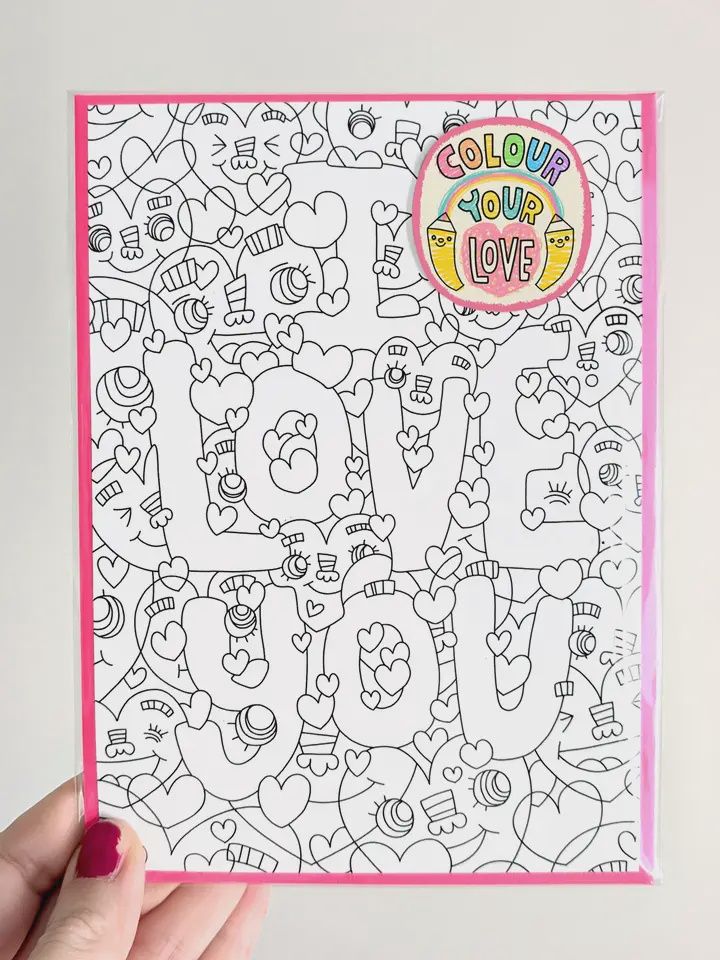 I
LOVE
YOU
COLOUR
YOUR
LOVE